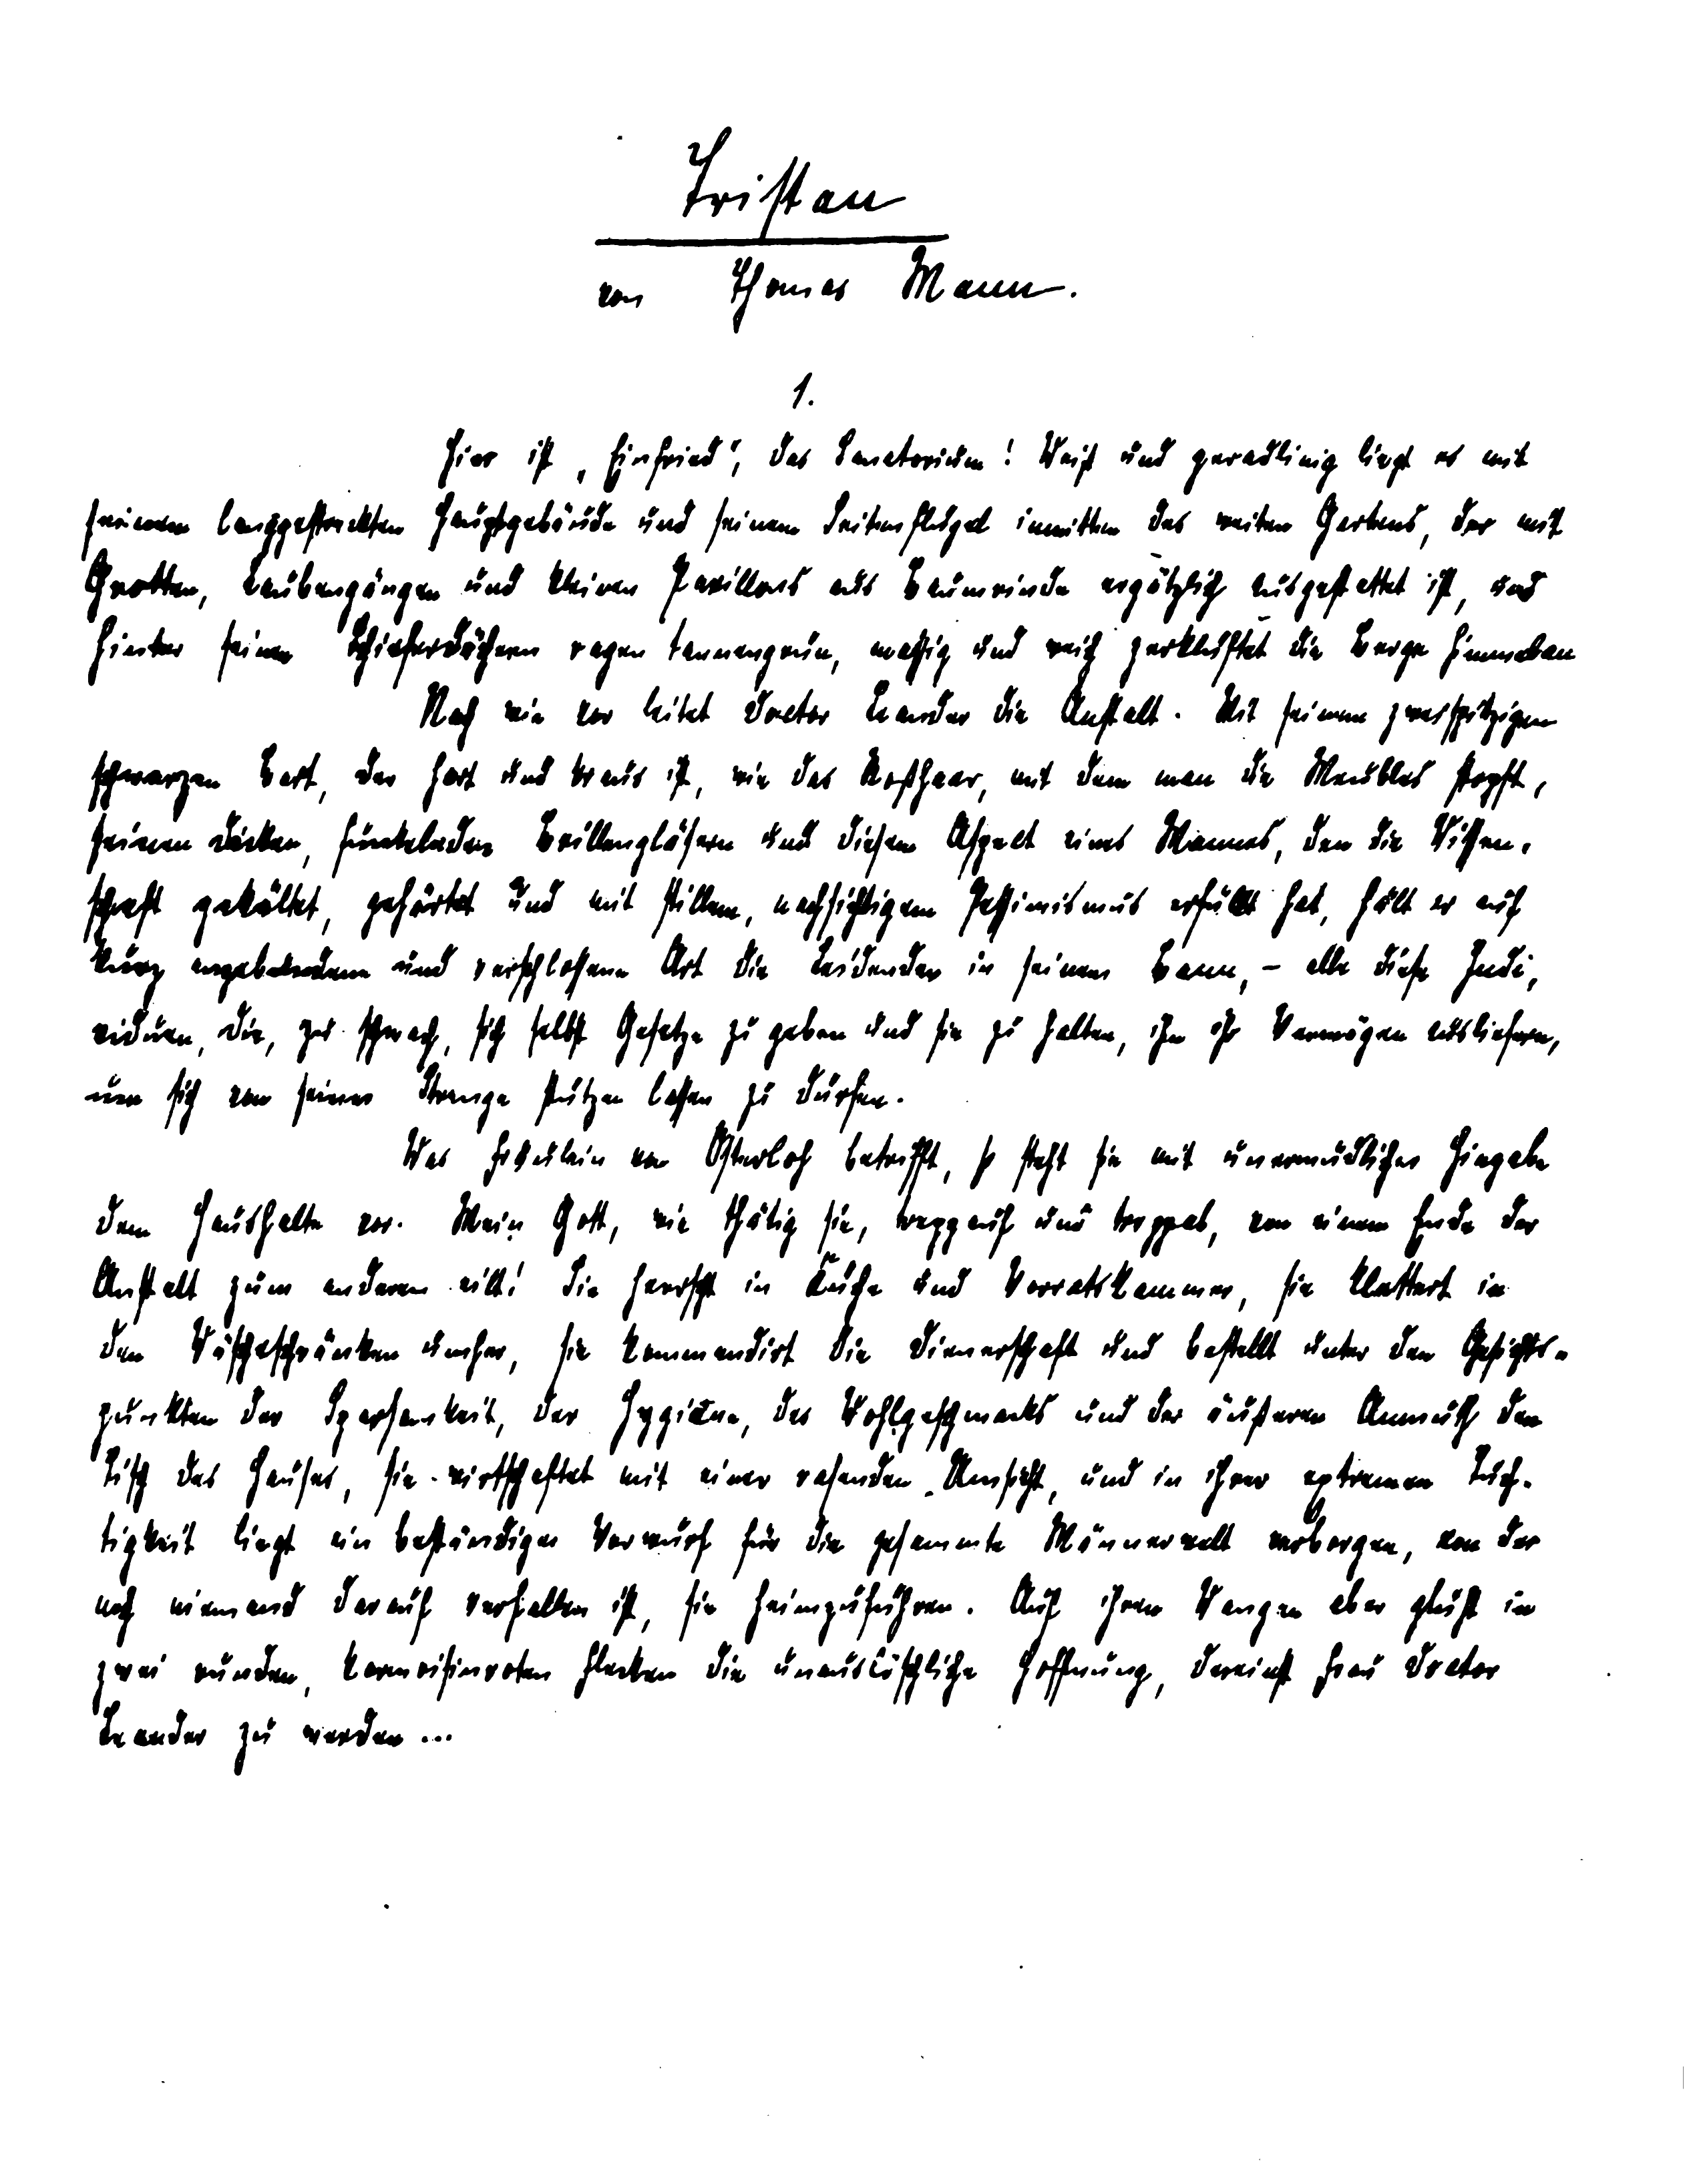 Tristan
von Thomas Mann.
1.
Hier ist „Einfried“, das Sanatorium! Weiß und geradlinig liegt es mit
seinem langgestreckten Hauptgebäude und seinem Seitenflügel inmitten des weiten Gartens, der mit
Grotten, Laubengängen und kleinen Pavillons aus Baumrinde ergötzlich ausgestattet ist, und
hinter seinen Schieferdächern ragen tannengrün, massig und weich zerklüftet die Berge himmelan
Nach wie vor leitet Doctor Leander die Anstalt. Mit seinem zweispitzigen
schwarzen Bart, der hart und kraus ist, wie das Roßhaar, mit dem man die Meubles stopft,
seinen dicken, funkelnden Brillengläsern und diesem Aspect eines Mannes, den die Wissen-
schaft gekältet, gehärtet und mit stillem, nachsichtigem Pessimismus erfüllt hat, hält er auf
kurz angebundene und verschlossene Art die Leidenden in seinem Bann, – alle diese Indi-
viduen, die, zu schwach, sich selbst Gesetze zu geben und sie zu halten, ihm ihr Vermögen ausliefern,
um sich von seiner Strenge stützen lassen zu dürfen.
Was Fräulein von Osterloh betrifft, so steht sie mit unermüdlicher Hingabe
dem Haushalte vor. Mein Gott, wie thätig sie, treppauf und treppab, von einem Ende der
Anstalt zum anderen eilt! Sie herrscht in Küche und Vorratskammer, sie klettert in
den Wäscheschränken umher, sie kommandirt die Dienerschaft und bestellt unter den Gesichts-
punkten der Sparsamkeit, der Hygiene, des Wohlgeschmacks und der äußeren Anmuth den
Tisch des Hauses, sie wirtschaftet mit einer rasenden Umsicht, und in ihrer extremen Tüch-
tigkeit liegt ein beständiger Vorwurf für die gesammte Männerwelt verborgen, von der
noch niemand darauf verfallen ist, sie heimzuführen. Auf ihren Wangen aber glüht in
zwei runden, karmoisinroten Flecken die unauslöschliche Hoffnung, dereinst Frau Doctor
Leander zu werden ...